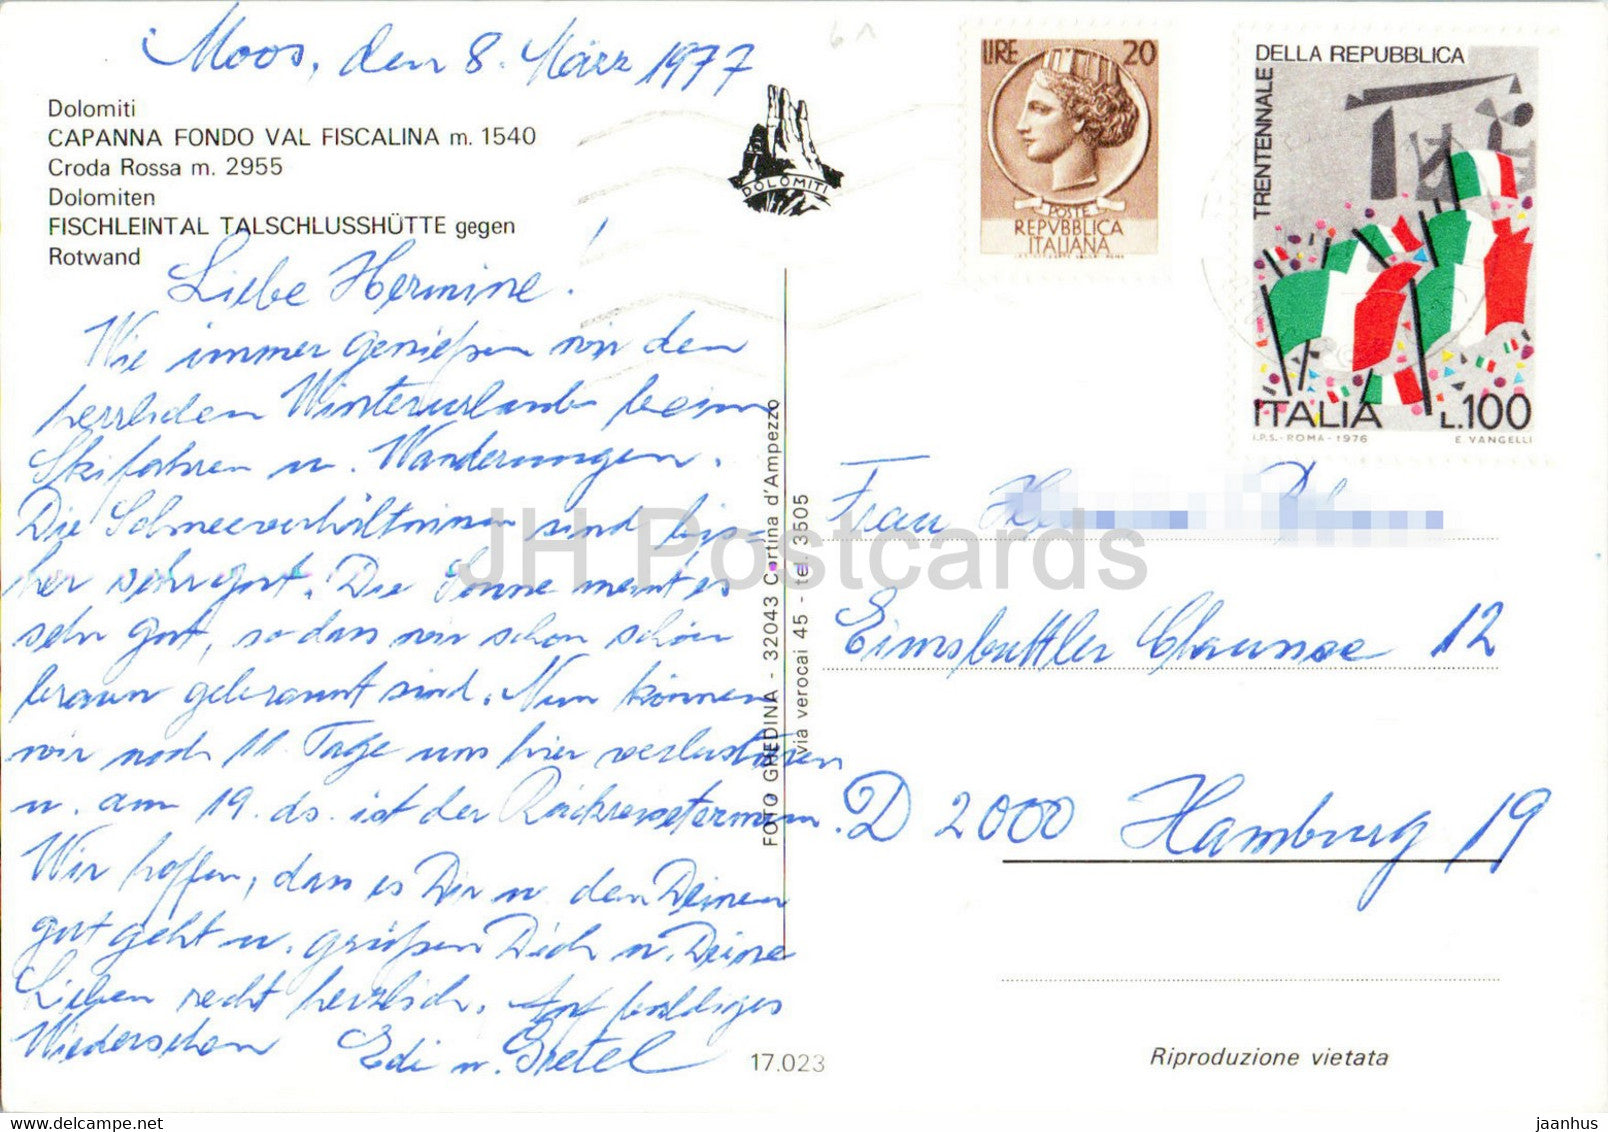 Moos, den 8. März 1977
Dolomiti
CAPANNA FONDO VAL FISCALINA m. 1540
Croda Rossa m. 2955
Dolomiten
FISCHLEINTAL TALSCHLUSSHÜTTE gegen
Rotwand
DOLOMITI
LIRE 20
POSTE
REPVBBLICA
ITALIANA
TRENTENNALE
DELLA REPUBBLICA
ITALIA L.100
I.P.S.-ROMA-1976 E. VANGELLI
Liebe Hermine!
Wie immer genießen wir den
herrlichen Winterurlaub beim
Skifahren u. Wanderungen.
Die Schneeverhältnisse sind bis=
her sehr gut. Die Sonne meint es
sehr gut, so dass wir schon schön
braun gebrannt sind. Nun können
wir noch 11 Tage uns hier
u. am 19. ds. ist der Rückreisetermin.
Wir hoffen, dass es Dir u. den Deinen
gut geht u. grüßen Dich u. Deine
Lieben recht herzlich. Auf baldiges
Wiedersehen Edi u. Gretel
FOTO GHEDINA - 32043 Cortina d'Ampezzo
via verocai 45 - tel. 3505
Frau
Eimsbüttler Chaussee 12
D 2000 Hamburg 19
17.023
Riproduzione vietata
JH Postcards
jaanhus